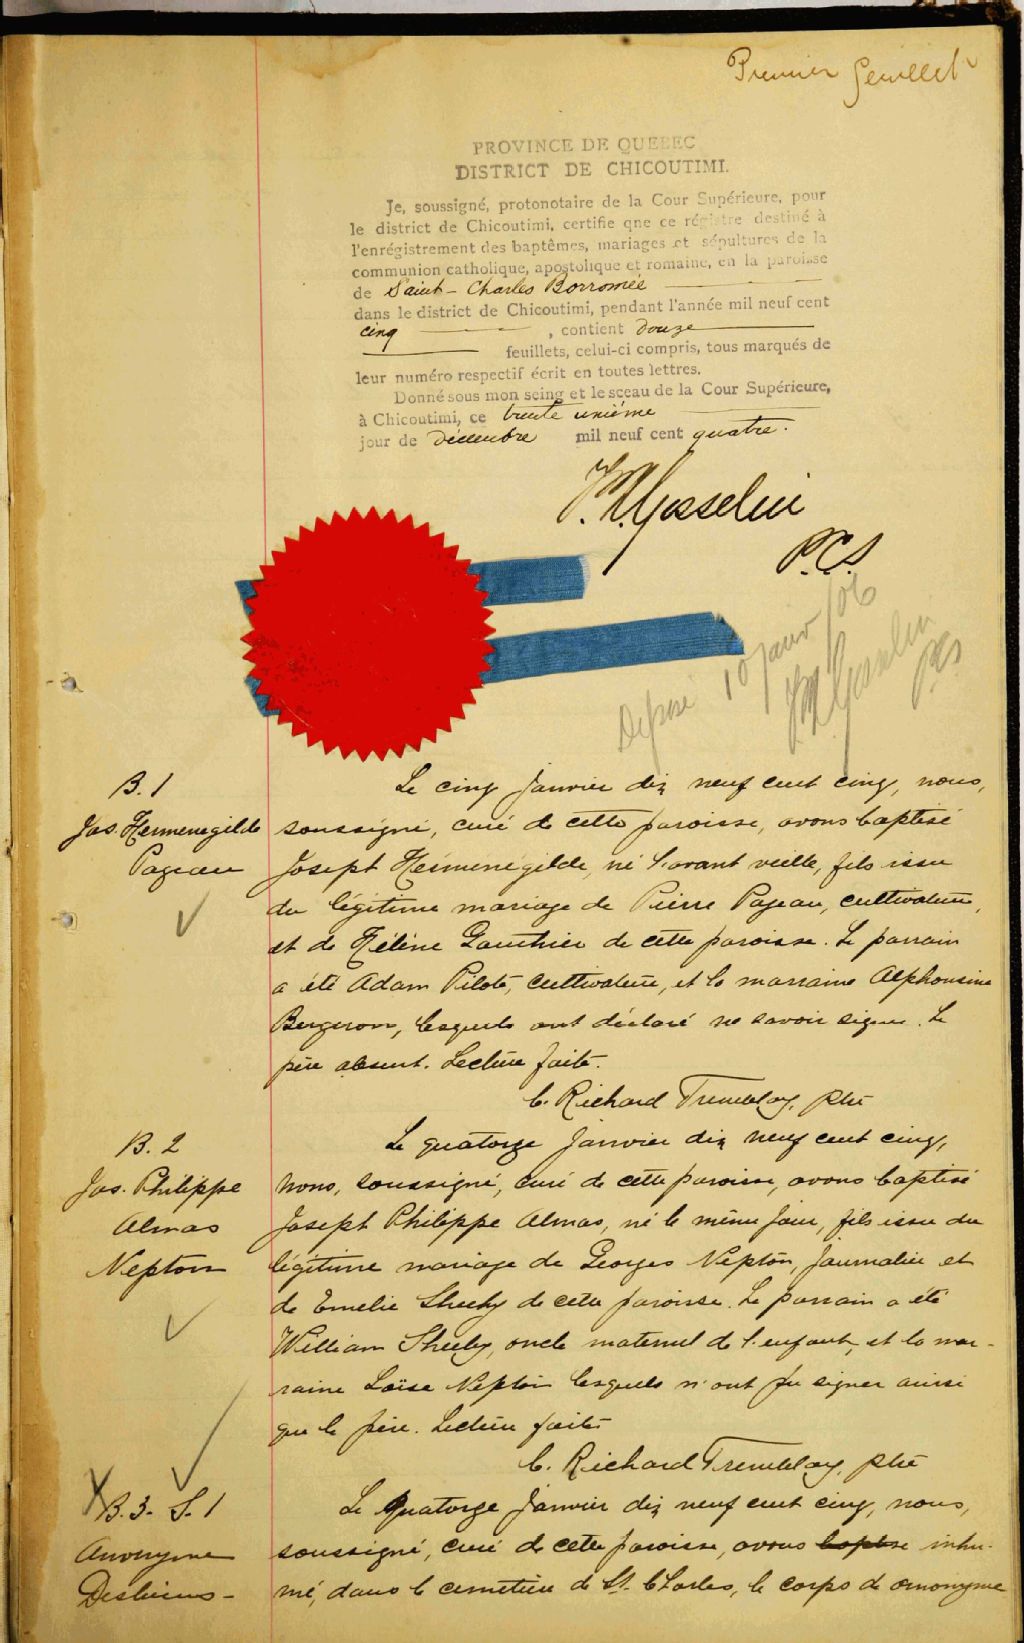 Premier feuillet
PROVINCE DE QUEBEC
DISTRICT DE CHICOUTIMI.
Je, soussigné, protonotaire de la Cour Supérieure, pour
le district de Chicoutimi, certifie qne ce régistre destiné à
l'enrégistrement des baptêmes, mariages et sépultures de la
communion catholique, apostolique et romaine, en la paroisse
de Saint-Charles Borromée
dans le district de Chicoutimi, pendant l'année mil neuf cent
cinq, contient douze
feuillets, celui-ci compris, tous marqués de
leur numéro respectif écrit en toutes lettres.
Donné sous mon seing et le sceau de la Cour Supérieure,
à Chicoutimi, ce trente unième
jour de décembre mil neuf cent quatre.
Gosselin
P.C.S.
Déposé 10 janvr /06
Gosselin
PCS
B. 1
Jos. Hermenegilde
Pageau
Le cinq Janvier dix neuf cent cinq, nous,
soussigné, curé de cette paroisse, avons baptisé
Joseph Herménégilde, né l'avant veille, fils issu
du légitime mariage de Pierre Pageau, cultivateur,
et de Hélène Gauthier de cette paroisse. Le parrain
a été Adam Pilote, cultivateur, et la marraine Alphonsine
Bergeron, lesquels ont déclaré ne savoir signer. Le
père absent. Lecture faite.
C. Richard Tremblay, ptre
B. 2
Jos. Philippe
Almas
Nepton
Le quatorze Janvier dix neuf cent cinq,
nous, soussigné, curé de cette paroisse, avons baptisé
Joseph Philippe Almas, né le même jour, fils issu du
légitime mariage de Georges Nepton, journalier et
de Emelie Sheehy de cette paroisse. Le parrain a été
William Sheehy, oncle maternel de l'enfant, et la mar-
raine Loïse Nepton lesquels n'ont pu signer ainsi
que le père. Lecture faite
C. Richard Tremblay, ptre
B. 3 - S. 1
Anonyme
Desbiens -
Le Quatorze Janvier dix neuf cent cinq, nous,
soussigné, curé de cette paroisse, avons baptisé inhu-
mé, dans le cimetière de St. Charles, le corps de anonyme